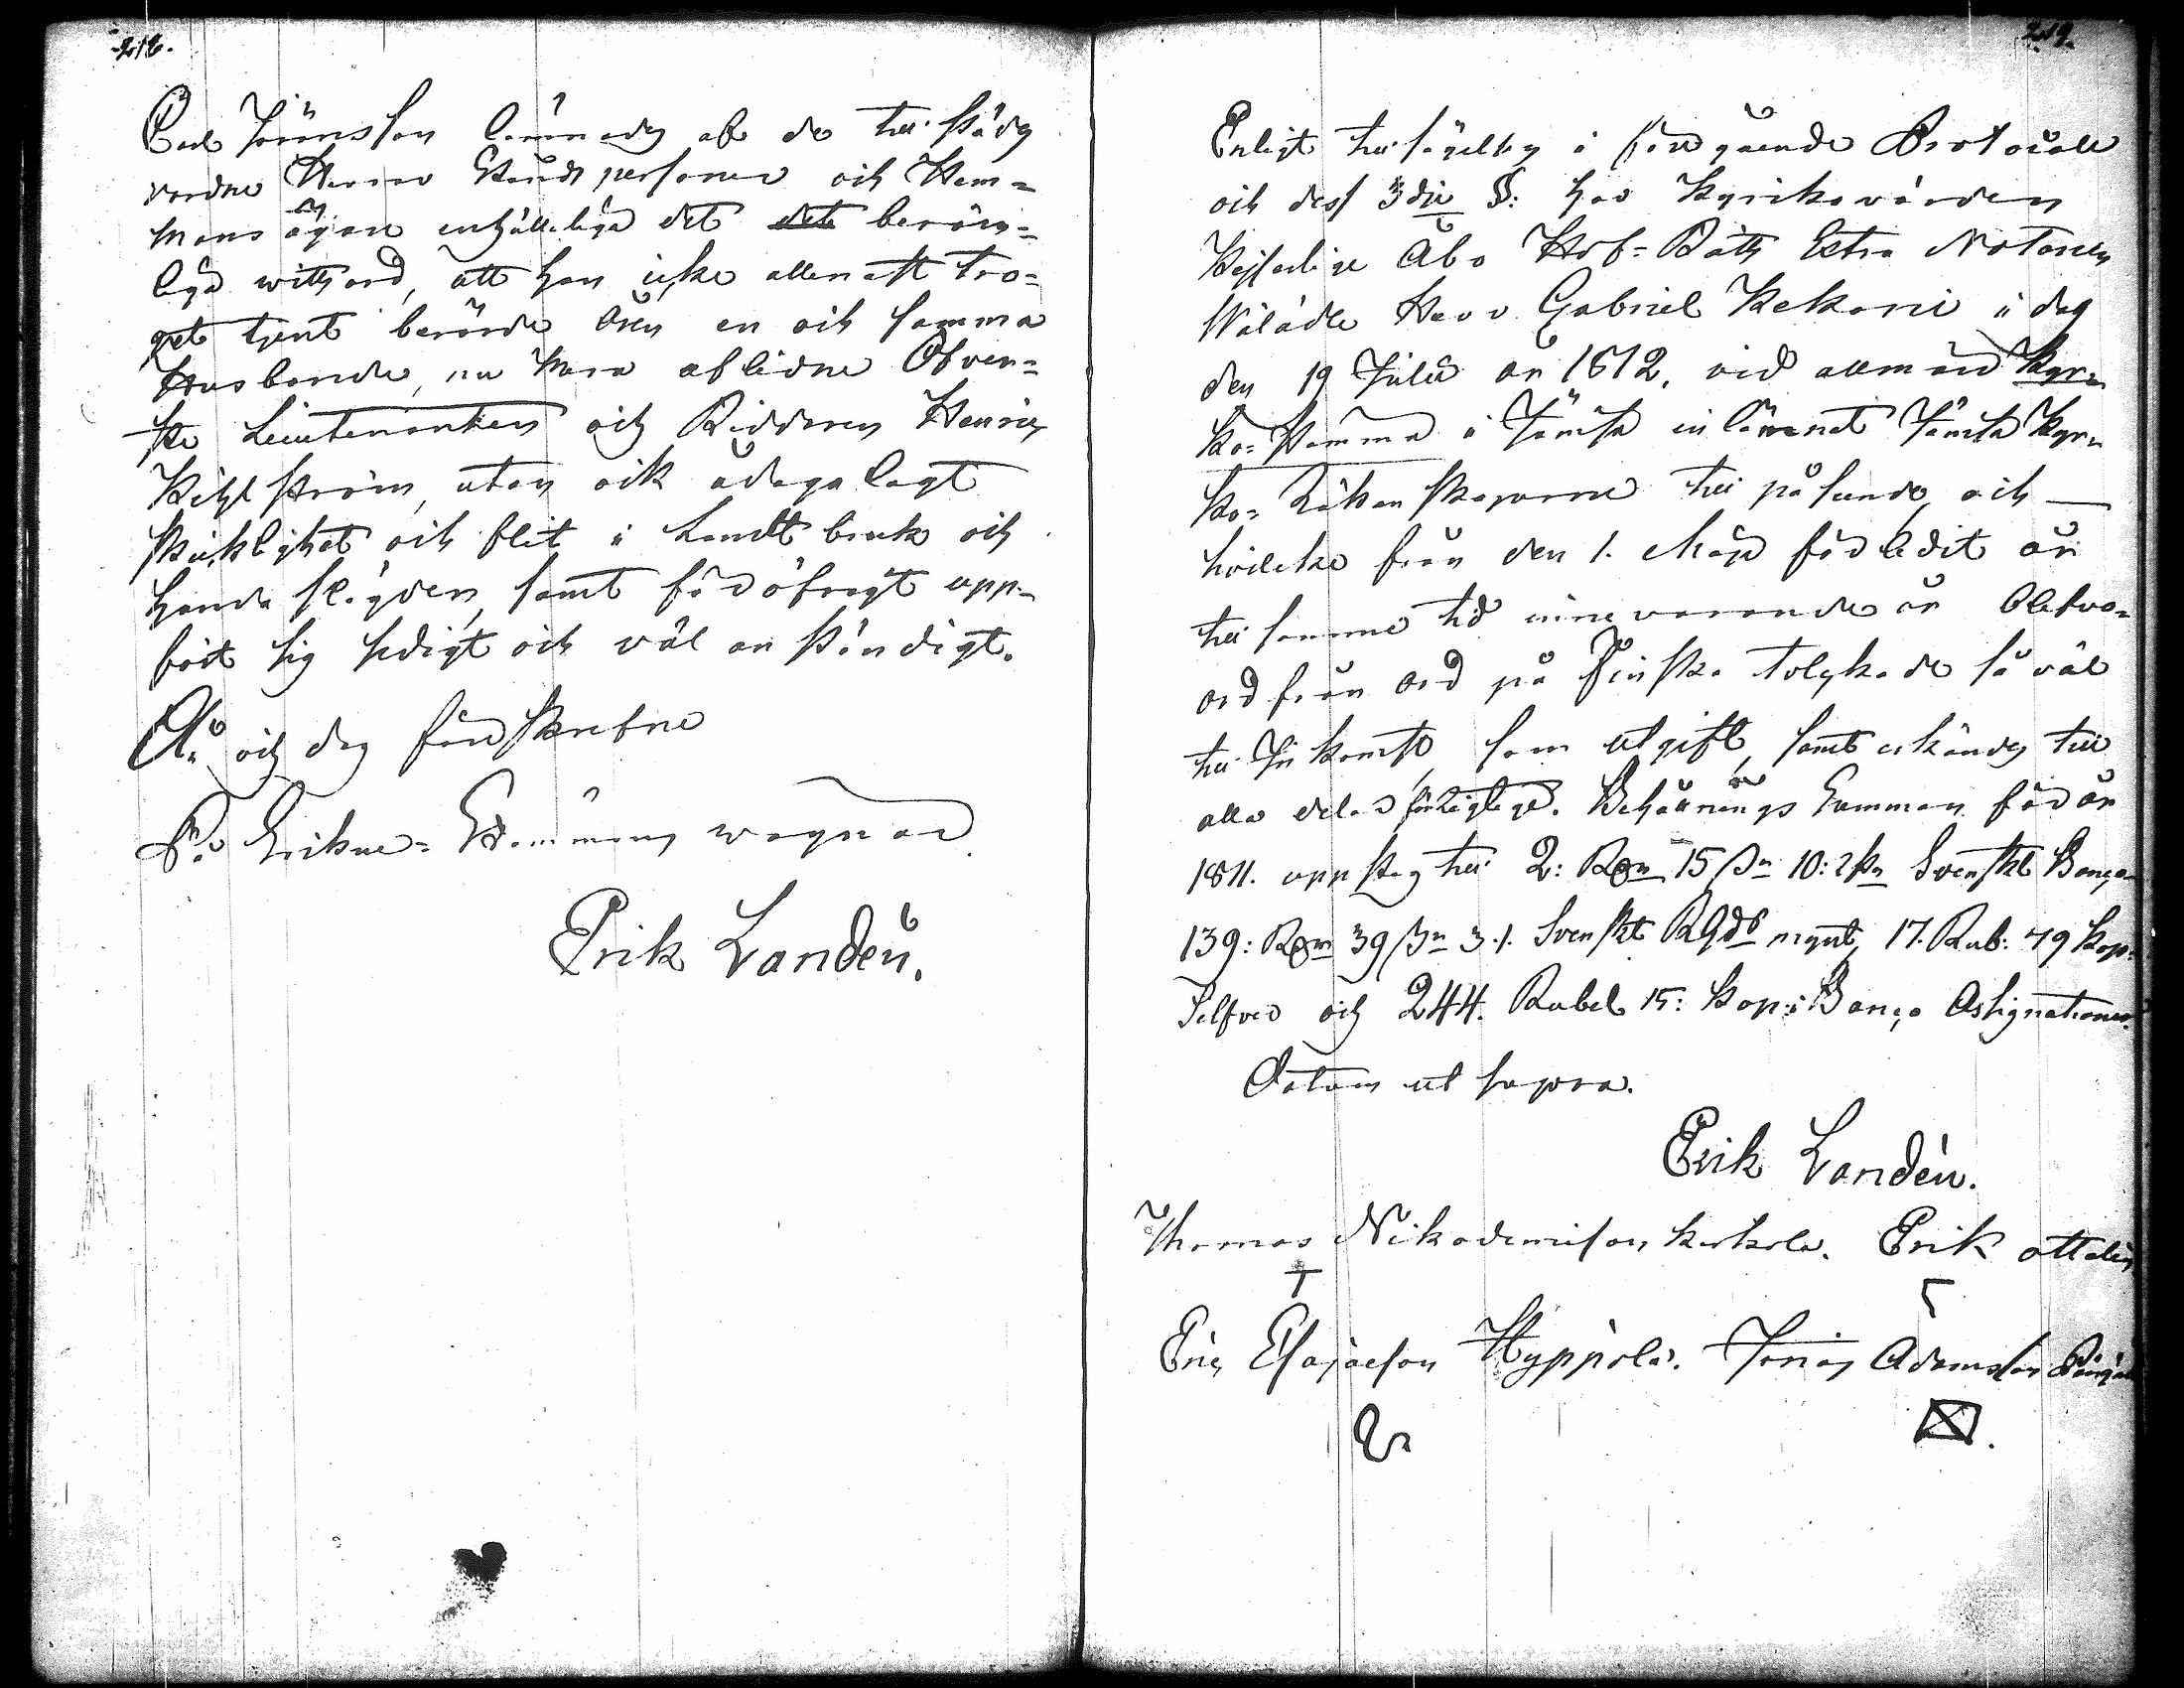 218.
Carl Jönsson lämnades af de tillstädes
vardne Herrar Stånds personer och Hem=
mans ägare enhälleligen det berömm=
liga wittsord, att han icke allenast tro=
get tjent berörde åren en och samma
Husbonde, nu mera aflidne Öfwer=
ste Lieutenanten och Riddaren Henric
utan ock ådagalagt
skicklighet och flit i Landtbruk och
handa slögder, samt för öfrigt upp=
fört sig sedigt och väl anständigt.
År och dag förskrefne
På Kyrkne= Stämmans wägnar
Erik Landén.
219.
Enligt tillsägelsen i föregående Protocoll
och dess 3dje §: har Kyrkovärden
Kejserlige Åbo Hof=Rätts Extra Notarien
Wälädle Herr Gabriel Kekoni i dag
den 19 Julii år 1812, vid allmän Kyr=
ko=stämma i Jämsä inlämnat Jämsä Kyr=
ko=Räkenskaperne till påseende, och
hvilcka från den 1. Maji förledit år
till samme tid innevarande år blefvo
ord från ord på Finska tolckade så väl
till Inkomst, som utgift, samt erkändes till
alla delar förlitlige. Behållnings Summan för år
1811. uppsteg till 2: Rdr 15 s 10: rst Svenskt Banco
139: Rdr 39 s 3. r. Svenskt Rgds mynt, 17. Rub: 79 Kop:
Silfver och 244. Rubel 15: Kop: i Banco Assignationer.
Datum ut supra.
Erik Landén.
Thomas Nikodemison Kerkola. Erik Attalin
Eric Esajaeson Hyppölä. Jonas Adamsson